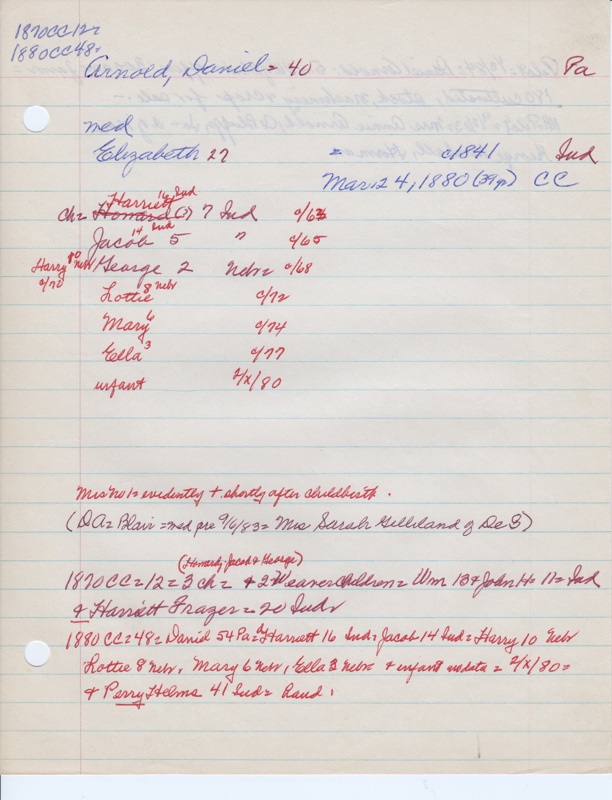 1870CC12=
1880CC48=
Arnold, Daniel = 40 Pa
med
Elizabeth 27 = c1841 Ind
Mar 24, 1880 (39 yr) CC
Harriett 16 Ind
ch= Howard (?) 7 Ind c/63
Jacob 14 Ind 5 " c/65
Harry 80 Nebr c/70 George 2 Nebr= c/68
Lottie 8 Nebr c/72
Mary 6 c/74
Ella 3 c/77
infant 2/x/80
Mrs No 1= evidently + shortly after childbirth.
(DA= Blair = med pre 9/6/83= Mrs Sarah Gilliland of De S)
(Howard, Jacob & George)
1870CC=12=3 ch= + 2 Weaver children= Wm 13 & John H 11= Ind
& Harriett Frazer = 20 Ind
1880CC=48= Daniel 54 Pa= Harriett 16 Ind= Jacob 14 Ind= Harry 10 Nebr
Lottie 8 Nebr, Mary 6 Nebr, Ella 3 Nebr & infant nodata = 2/x/80=
& Perry Helms 41 Ind= hand